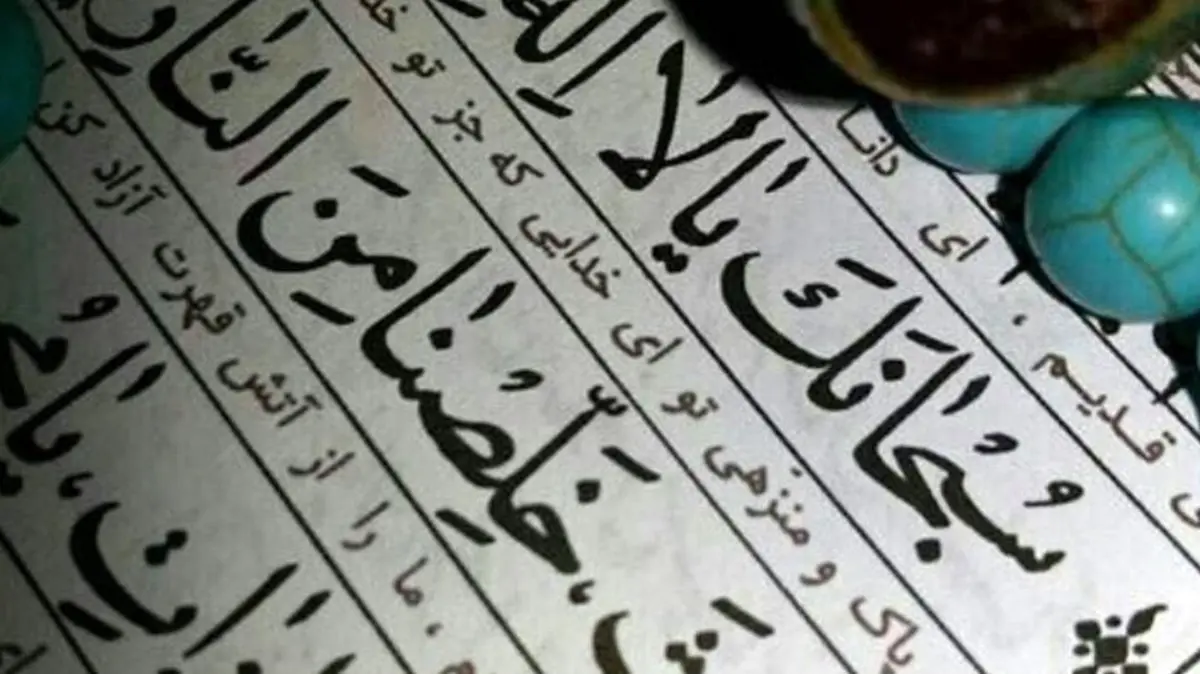 قدیم ، ای دانا
سُبْحانَكَ يا لا اِلهَ
پاکی و منزهی تو ای خدایی که جز تو
خَلِّصْنا مِنَ النّارِ
، ما را از آتش قهرت آزاد کن
يا
ای